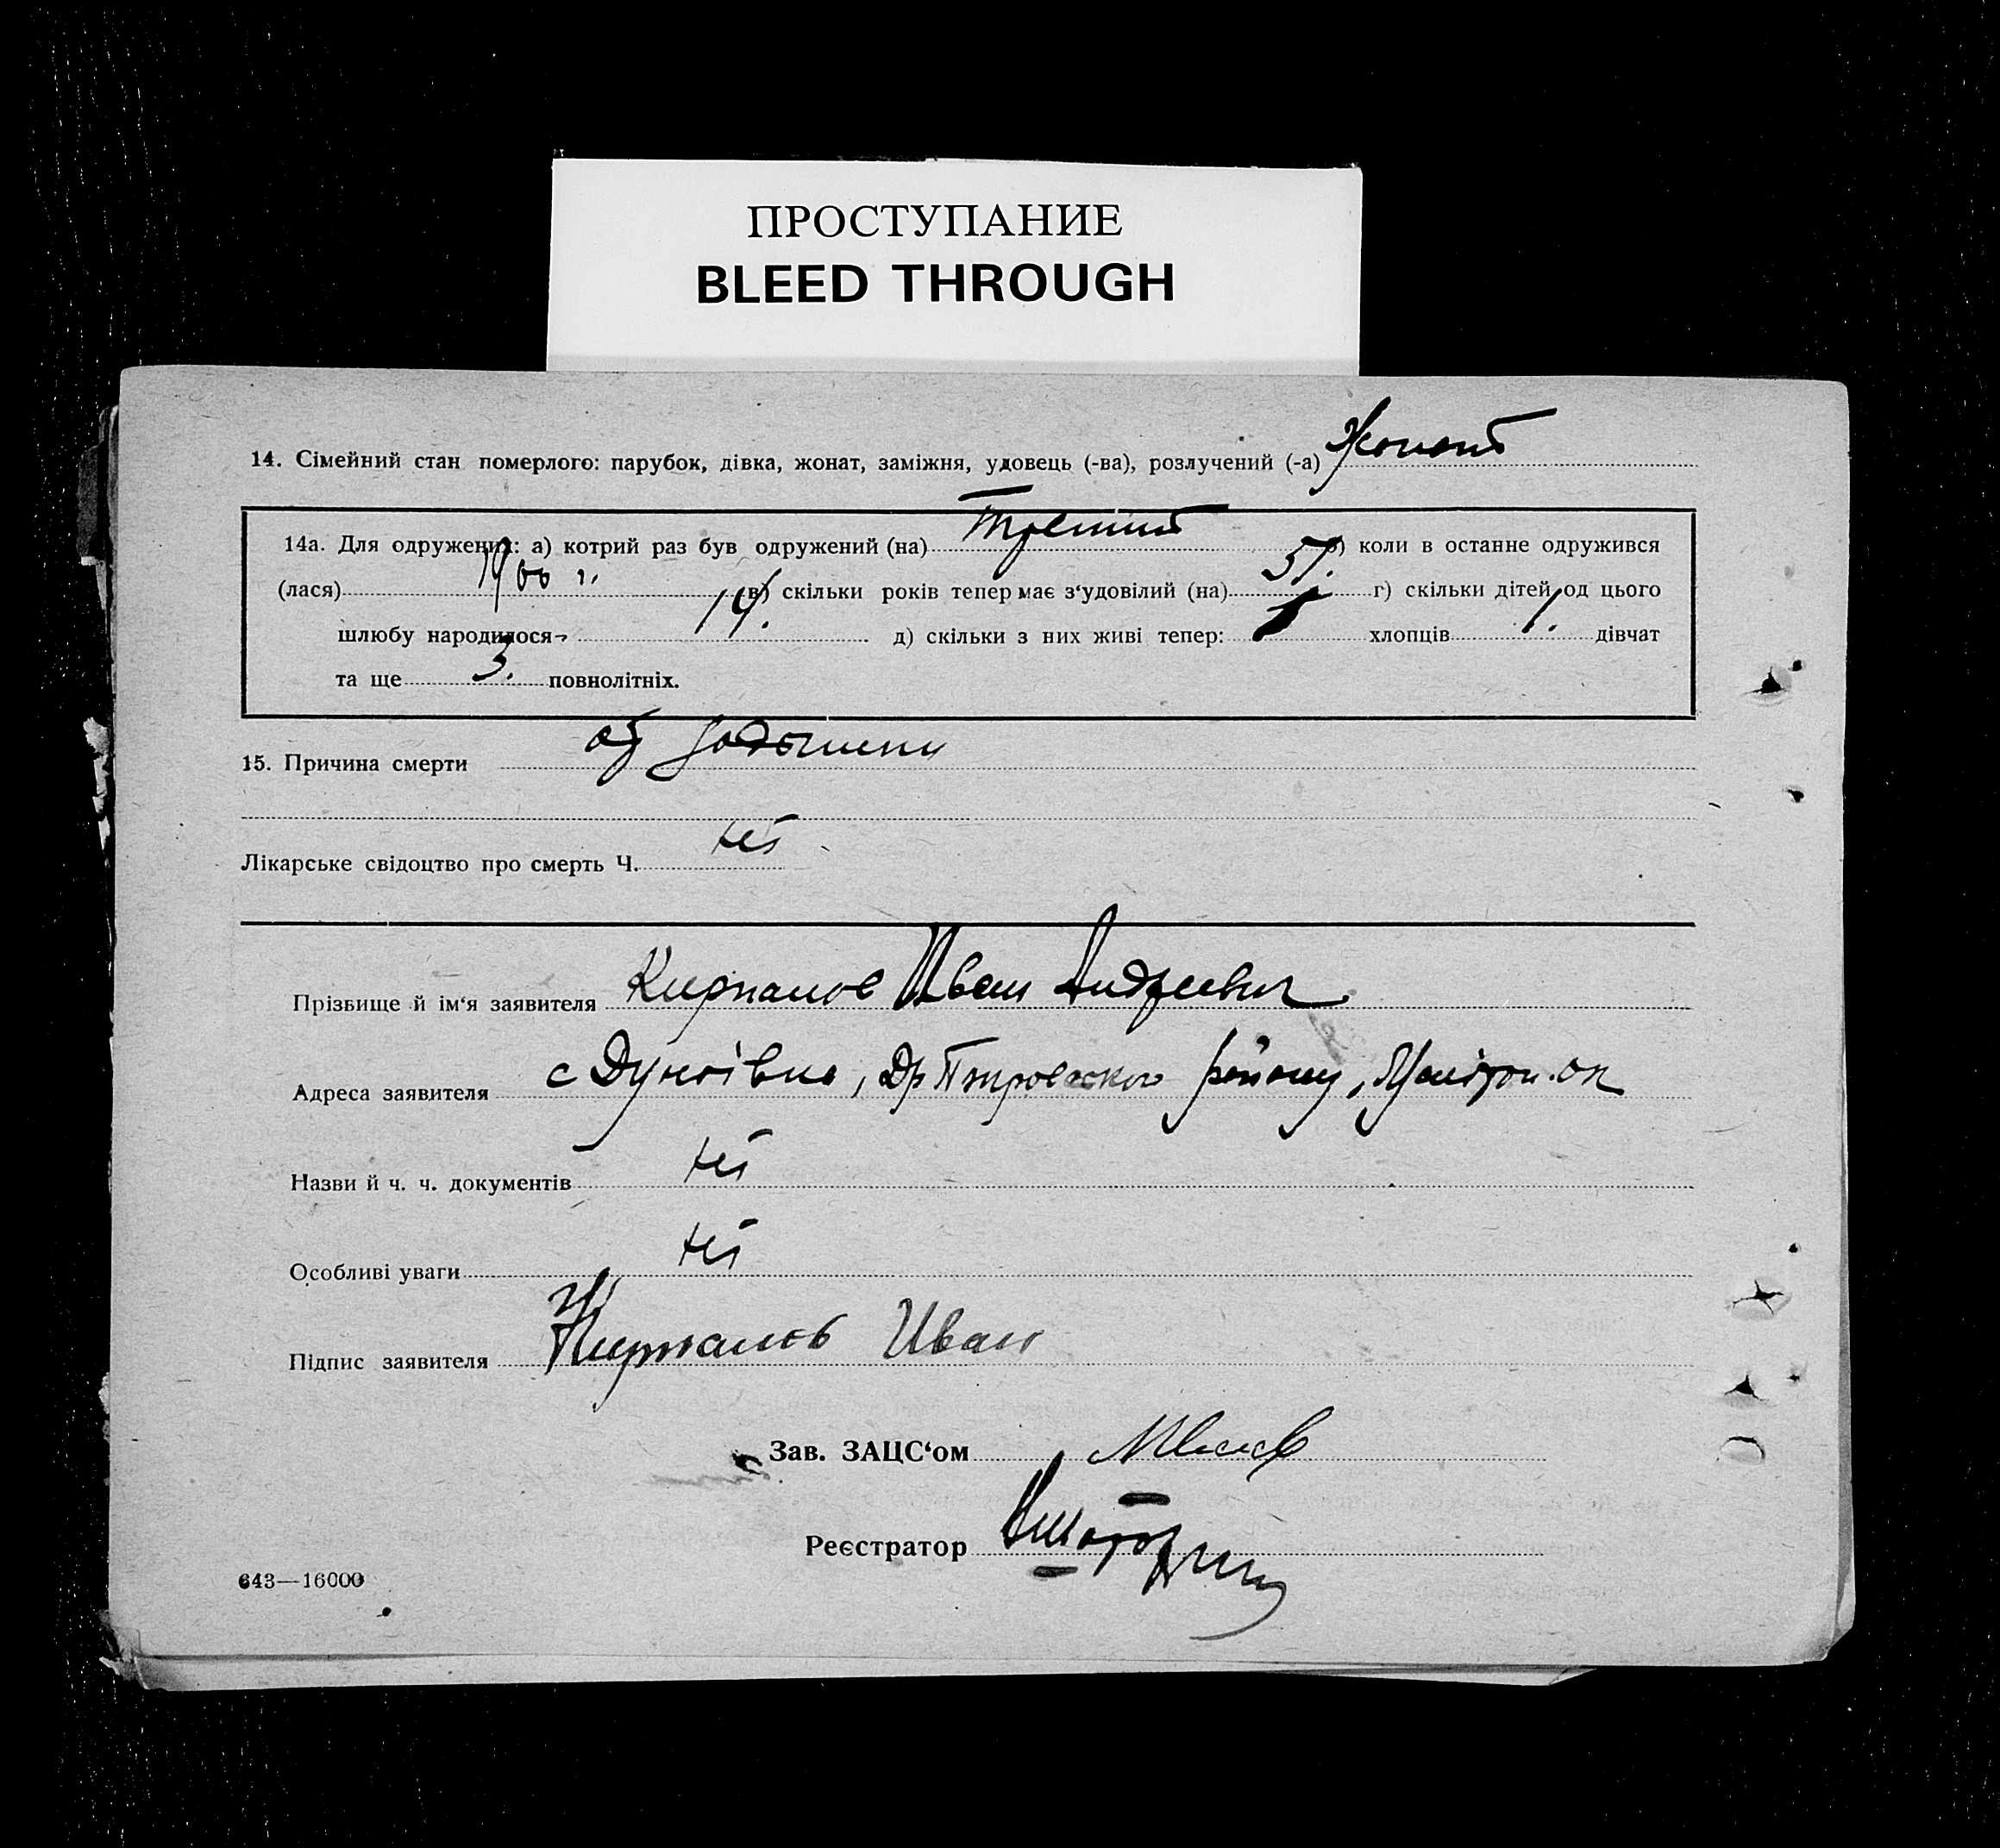 ПРОСТУПАНИЕ
BLEED THROUGH
14. Сімейний стан померлого: парубок, дівка, жонат, заміжня, удовець (-ва), розлучений (-а) Жонат
14а. Для одружених: а) котрий раз був одружений (на) третий б) коли в останне одружився
(лася) 1900 г. в) скільки років тепер має з‘удовілий (на) 51. г) скільки дітей од цього
шлюбу народилося- 14. д) скільки з них живі тепер: хлопців 1. дівчат
та ще 3. повнолітніх.
15. Причина смерти от
Лікарське свідоцтво про смерть Ч. нет
Прізбище й ім‘я заявителя Иван Андреевич
Адреса заявителя с району,
Назви й ч. ч. документів нет
Особливі уваги нет
Підпис заявителя Иван
Зав. ЗАЦС‘ом
Реєстратор
643—16000